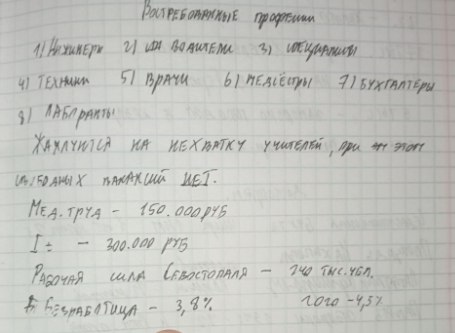 Востребованные профессии
1) Инженеры 2) водители 3)
4) Техники 5) Врачи 6) Медсёстры 7) Бухгалтеры
8) Лаборанты
Жалуются на нехватку учителей, при этом
свободных вакансий НЕТ.
Мед. труд - 150.000 руб
- 300.000 руб
Рабочая сила Севостополя - 240 тыс. чел.
Безработица - 3,8% - 4,5%